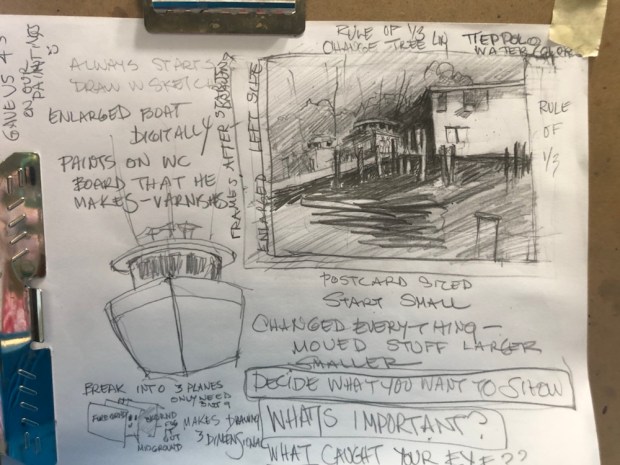 GAVE US 45
ON OUR
PAINTINGS
ALWAYS STARTS
DRAW IN SKETCH
ENLARGED BOAT
DIGITALLY
PAINTS ON WC
BOARD THAT HE
MAKES - VARNISHES
FRAMES AFTER
ENLARGED LEFT SIZE
RULE OF 1/3
CHANGE TREE LIN
TIEPOLO
WATER COLORS
RULE
OF
1/3
POSTCARD SIZED
START SMALL
CHANGED EVERYTHING -
MOVED STUFF LARGER
SMALLER
DECIDE WHAT YOU WANT TO SHOW
WHATS IMPORTANT?
WHAT CAUGHT YOUR EYE??
BREAK INTO 3 PLANES
ONLY NEED
MAKES DRAWING
3 DIMENSIONAL
MIDGROUND